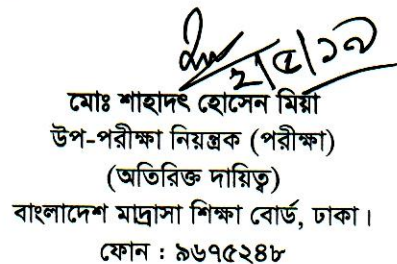 ২/৫/১৭
মোঃ শাহাদৎ হোসেন মিয়া
উপ-পরীক্ষা নিয়ন্ত্রক (পরীক্ষা)
(অতিরিক্ত দায়িত্ব)
বাংলাদেশ মাদ্রাসা শিক্ষা বোর্ড, ঢাকা।
ফোন : ৯৬৭৫২৪৮